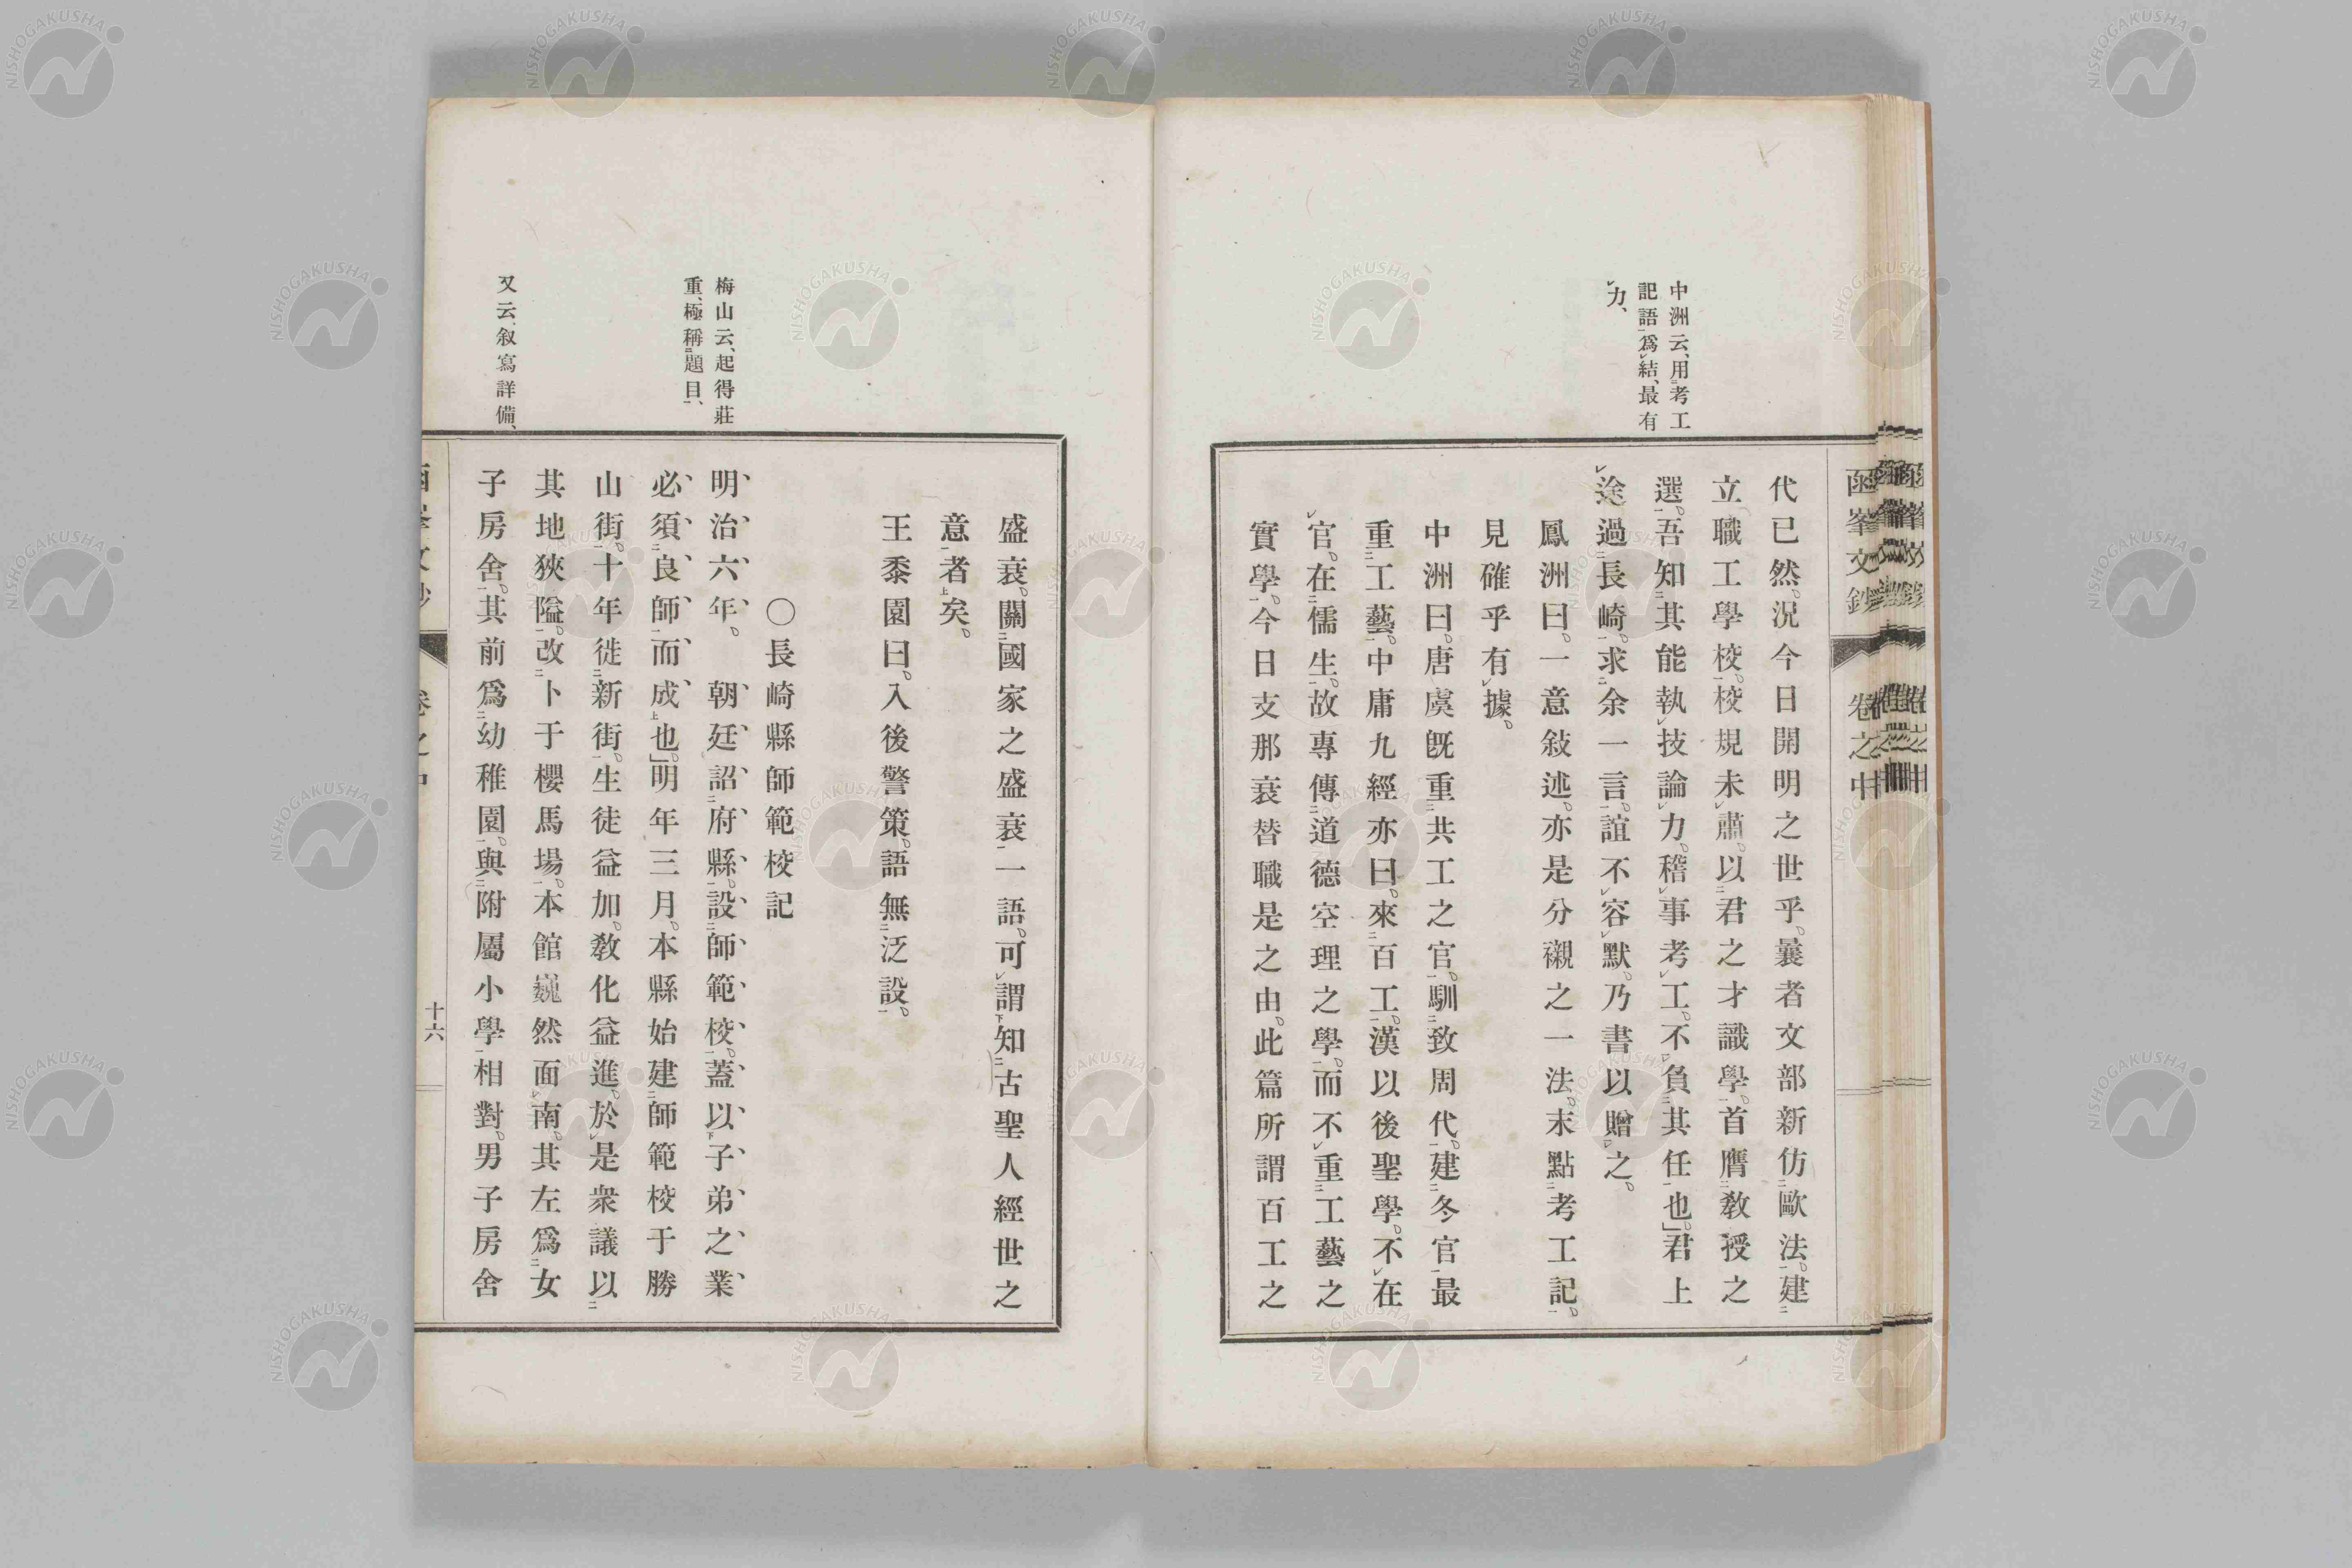 函峯文鈔
卷之中
中洲云、用考工
記語爲結、最有
力、
代已然。況今日開明之世乎。曩者文部新仿歐法。建
立職工學校。校規未肅。以君之才識學。首膺教授之
選。吾知其能執技論力。稽事考工。不負其任也。」君上
途過長崎。求余一言。誼不容默。乃書以贈之。
鳳洲曰。一意敍述。亦是分襯之一法。末點考工記。
見確乎有據。
中洲曰。唐虞既重共工之官。馴致周代。建冬官最
重工藝。中庸九經亦曰。來百工。漢以後聖學。不在
官。在儒生。故專傳道德空理之學。而不重工藝之
實學。今日支那衰替職是之由。此篇所謂百工之
盛衰。關國家之盛衰一語。可謂知古聖人經世之
意者矣。
王黍園曰。入後警策。語無泛設。
梅山云、起得莊
重、極稱題目、
又云、叙寫詳備、
〇長崎縣師範校記
明治六年。朝廷詔府縣。設師範校。蓋以子弟之業
必須良師而成也。」明年三月。本縣始建師範校于勝
山街。十年徙新街。生徒益加。教化益進。於是衆議以
其地狹隘。改卜于櫻馬場。本館巍然面南。其左爲女
子房舍。其前爲幼稚園。與附屬小學相對。男子房舍
十六
NISHOGAKUSHA